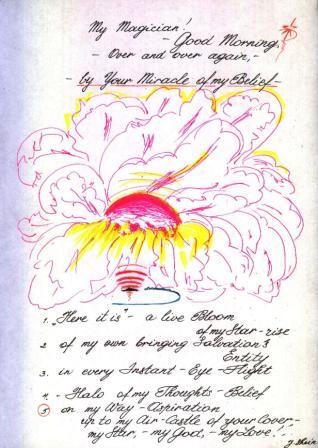 My Magician!
- Good Morning,
- Over and over again, -
- by Your Miracle of my Belief -
1. "Here it is" - a live Bloom
of my Star-rise
2 of my own bringing Salvations
Entity
3. in every Instant - Eye - Flight
4. - Halo of my Thoughts - Belief
5 on my Way - Aspiration
up to my Air-Castle of your Cover -
my Star, - my God, - my Love!